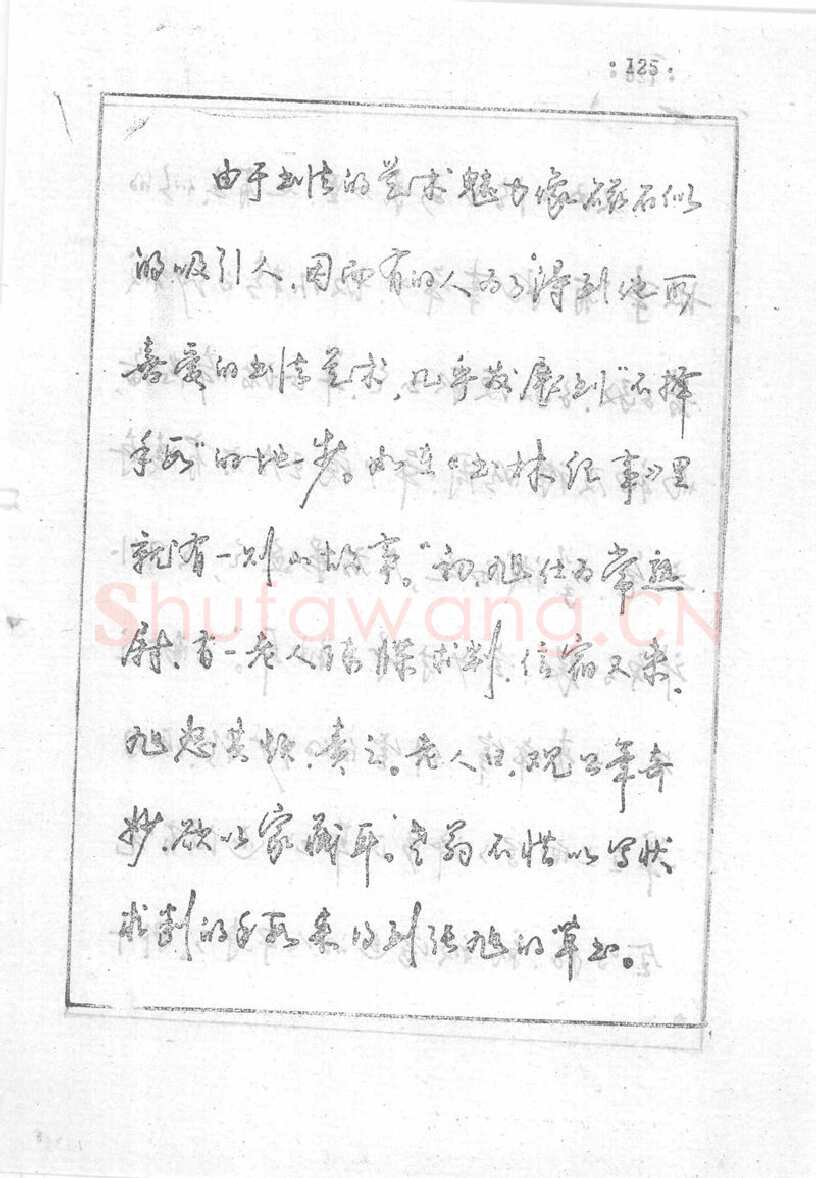 ·125·
由于书法的艺术魅力像磁石似
的吸引人，因而有的人为了得到他所
喜爱的书法艺术，几乎发展到"不择
手段"的地步。如在《书林纪事》里
就有一则小故事。"初，旭仕为常熟
尉，有一老人陈牒求判，信宿又来，
旭怒其烦，责之。老人曰，观公笔奇
妙，欲以家藏耳。"老翁不惜以写状
求判的手段来得到张旭的草书。
Shufawang.CN